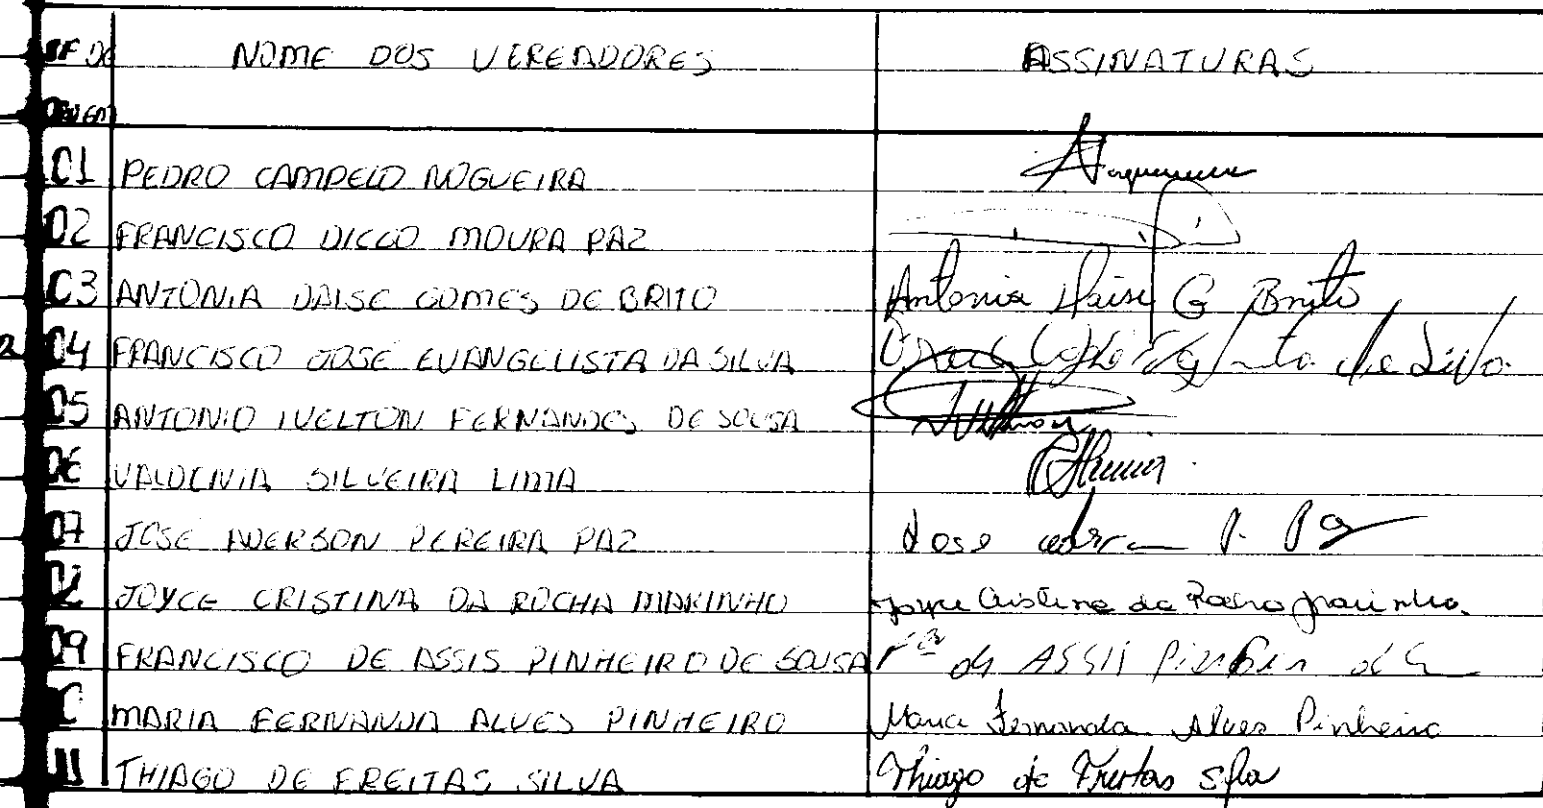 NOME DOS VEREADORES ASSINATURAS
01 PEDRO CAMPELO NOGUEIRA
02 FRANCISCO DIEGO MOURA PAZ
03 ANTONIA DAISE GOMES DE BRITO Antonia Daise G Brito
04 FRANCISCO JOSE EVANGELISTA DA SILVA
05 ANTONIO IVELTON FERNANDES DE SOUSA
06 VALDENIA SILVEIRA LIMA
07 JOSE ADERSON PEREIRA PAZ Jose P. Paz
08 JOYCE CRISTINA DA ROCHA MARINHO Joyce Cristina da Rocha Marinho.
09 FRANCISCO DE ASSIS PINHEIRO DE SOUSA Fco de ASSIS Pinheiro de S
10 MARIA FERNANDA ALVES PINHEIRO Maria Fernanda Alves Pinheiro
11 THIAGO DE FREITAS SILVA Thiago de Freitas Silva